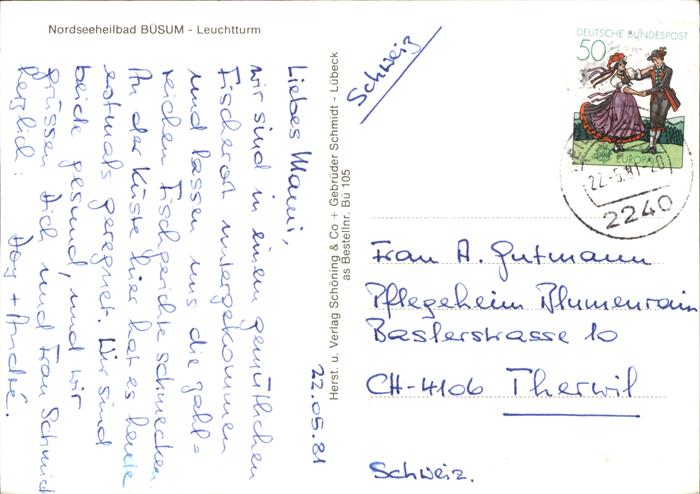 Nordseeheilbad BÜSUM - Leuchtturm
22.05.81
Liebes Mami,
wir sind in einem gemütlichen
Fischerort untergekommen
und lassen uns die zahl=
reichen Fischgerichte schmecken.
An der Küste hier hat es heute
erstmals geregnet. Wir sind
beide gesund, und wir
grüssen Dich und Frau Schmid
herzlich:
Joy + André.
Herst. u. Verlag Schöning & Co + Gebrüder Schmidt - Lübeck
as Bestellnr. Bü 105
Schweiz
DEUTSCHE BUNDESPOST
50
EUROPA
22.-5.81-20
2240
Frau A. Gutmann
Pflegeheim Blumenrain
Baslerstrasse 10
CH-4106 Therwil
Schweiz.